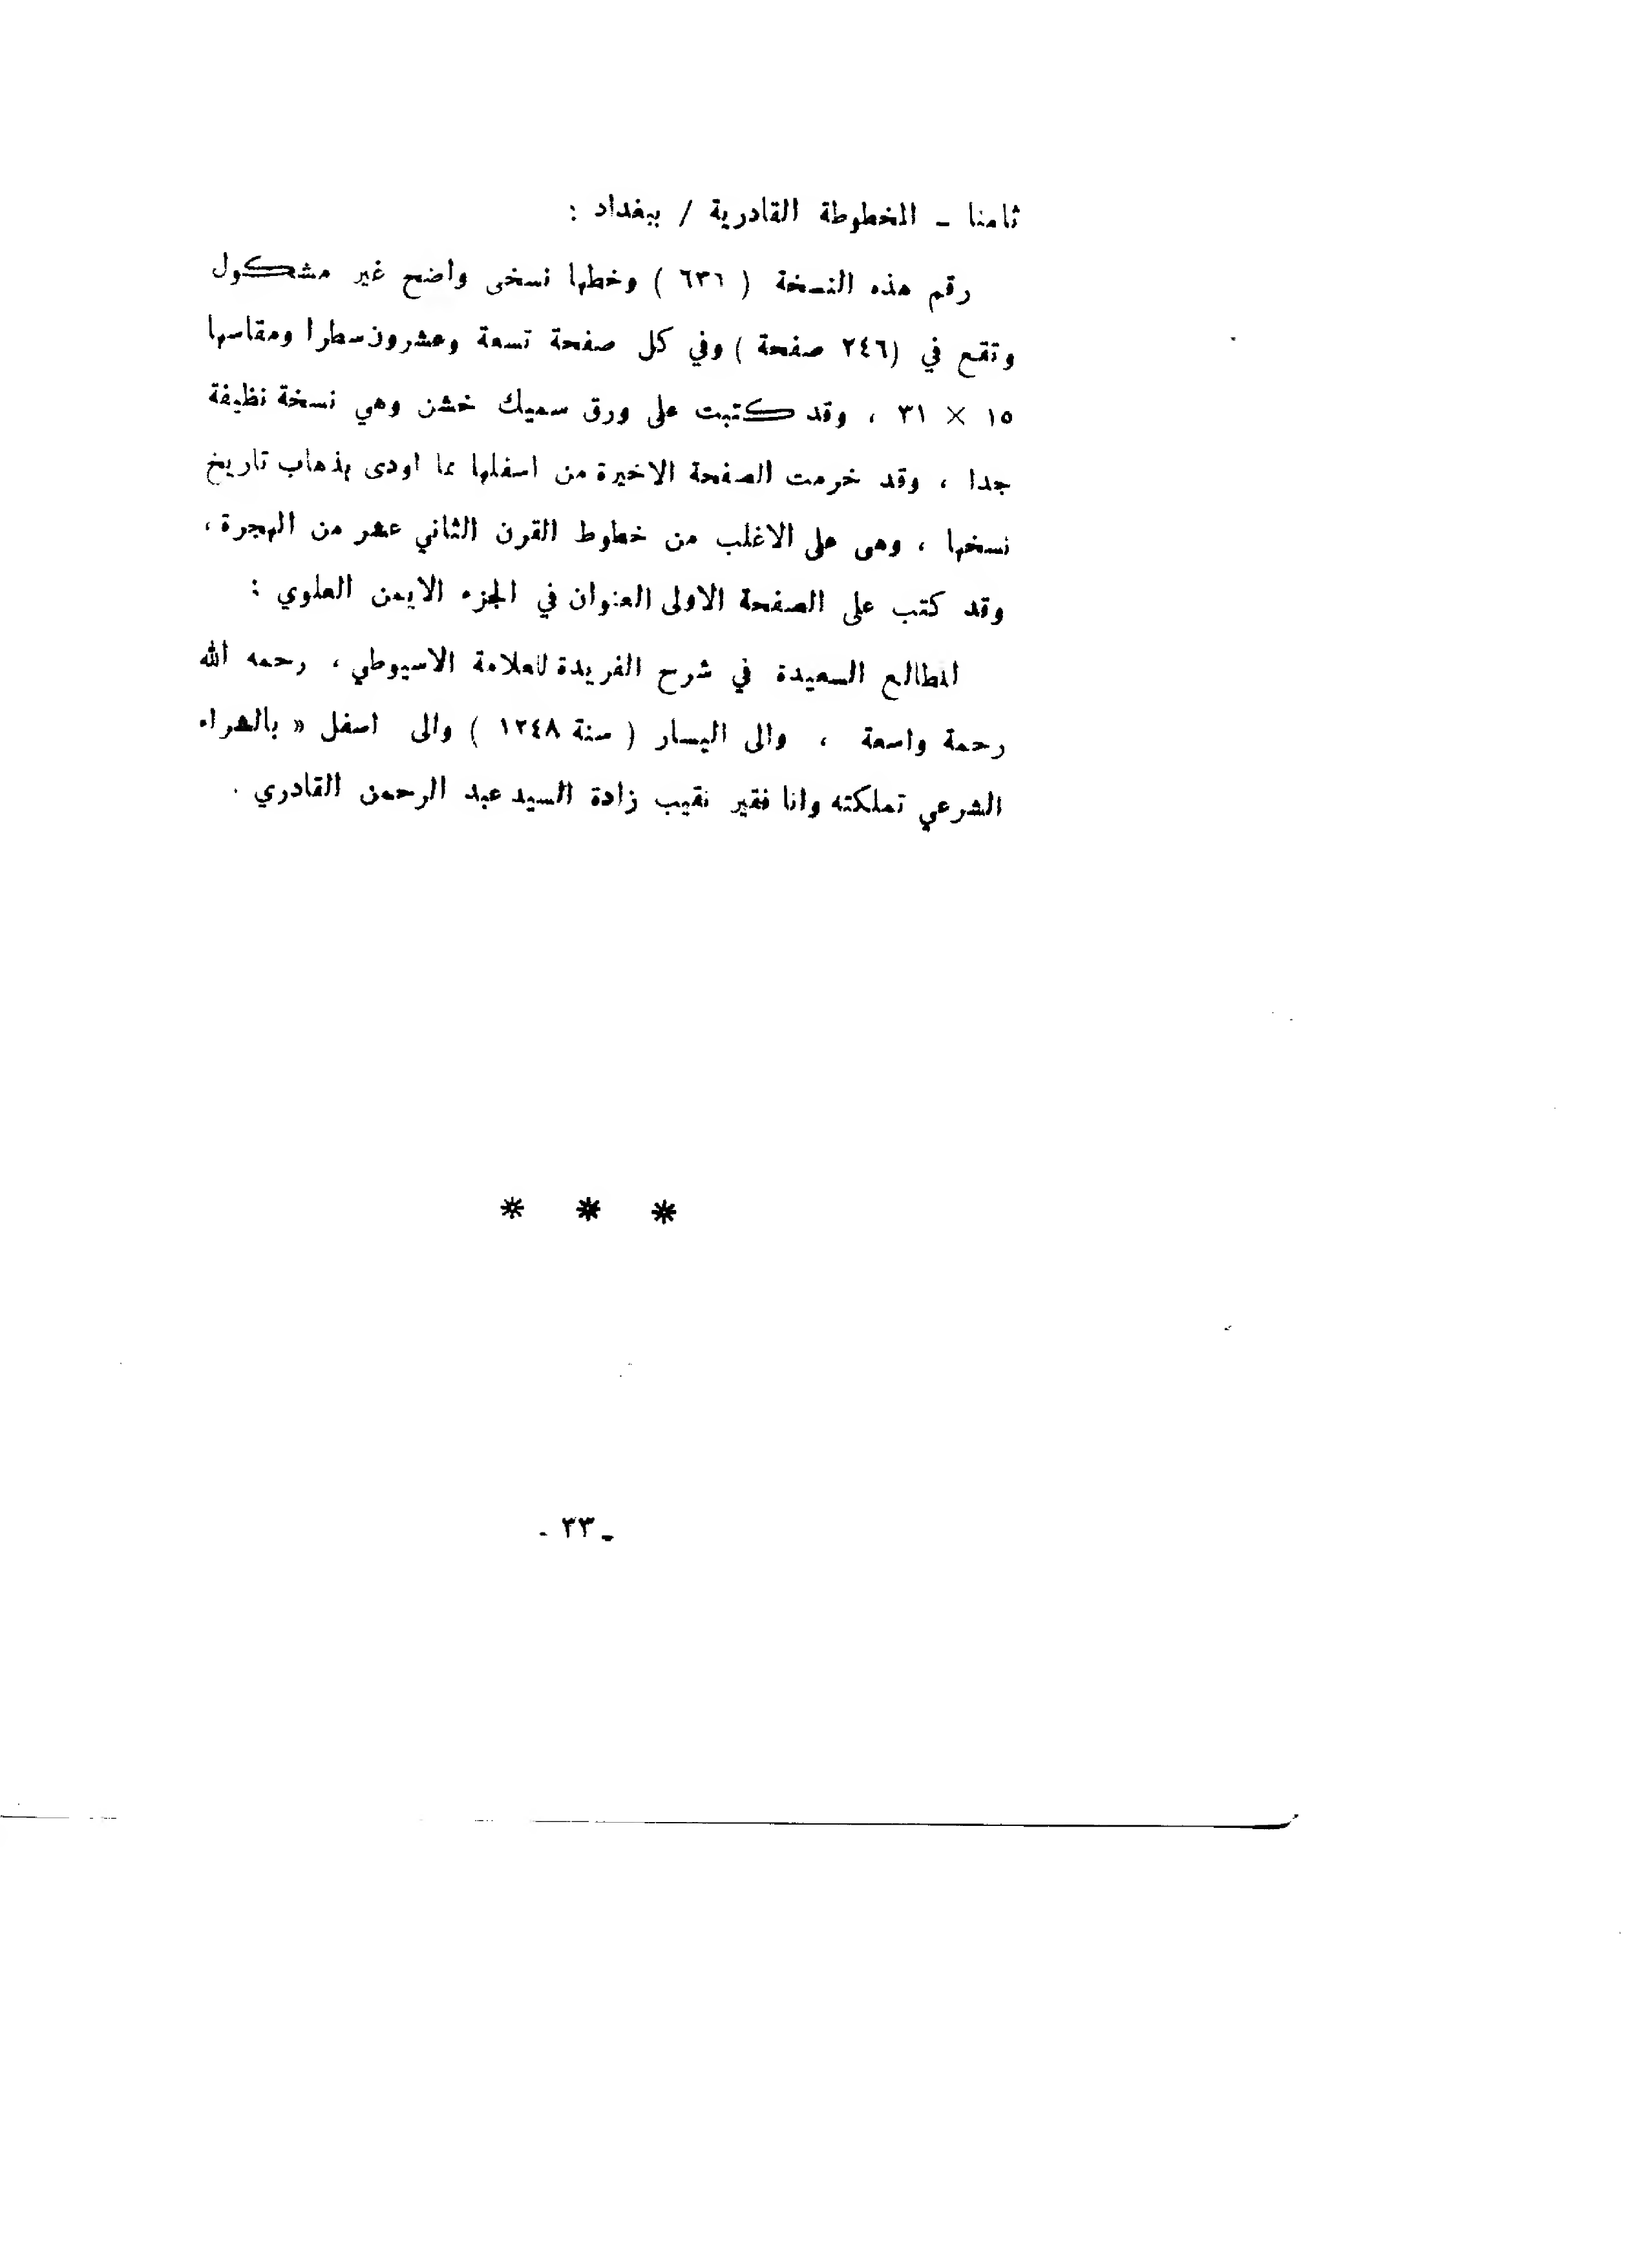 ثامنا ـ المخطوطة القادرية / ببغداد :
رقم هذه النسخة ( ٦٣٦ ) وخطها نسخى واضح غير مشكول
وتقع في (٢٤٦ صفحة ) وفي كل صفحة تسعة وعشرون سطرا ومقاسها
١٥ × ٣١ ، وقد كتبت على ورق سميك خشن وهي نسخة نظيفة
جدا ، وقد خرمت الصفحة الاخيرة من اسفلها مما اودى بذهاب تاريخ
نسخها ، وهى على الاغلب من خطوط القرن الثاني عشر من الهجرة ،
وقد كتب على الصفحة الاولى العنوان في الجزء الايمن العلوي :
المطالع السعيدة في شرح الفريدة للعلامة الاسيوطي ، رحمه الله
رحمة واسعة ، والى اليسار ( سنة ١٢٤٨ ) والى اسفل « بالشراء
الشرعي تملكته وانا فقير نقيب زادة السيد عبد الرحمن القادري .
* * *
ـ ٣٣ ـ